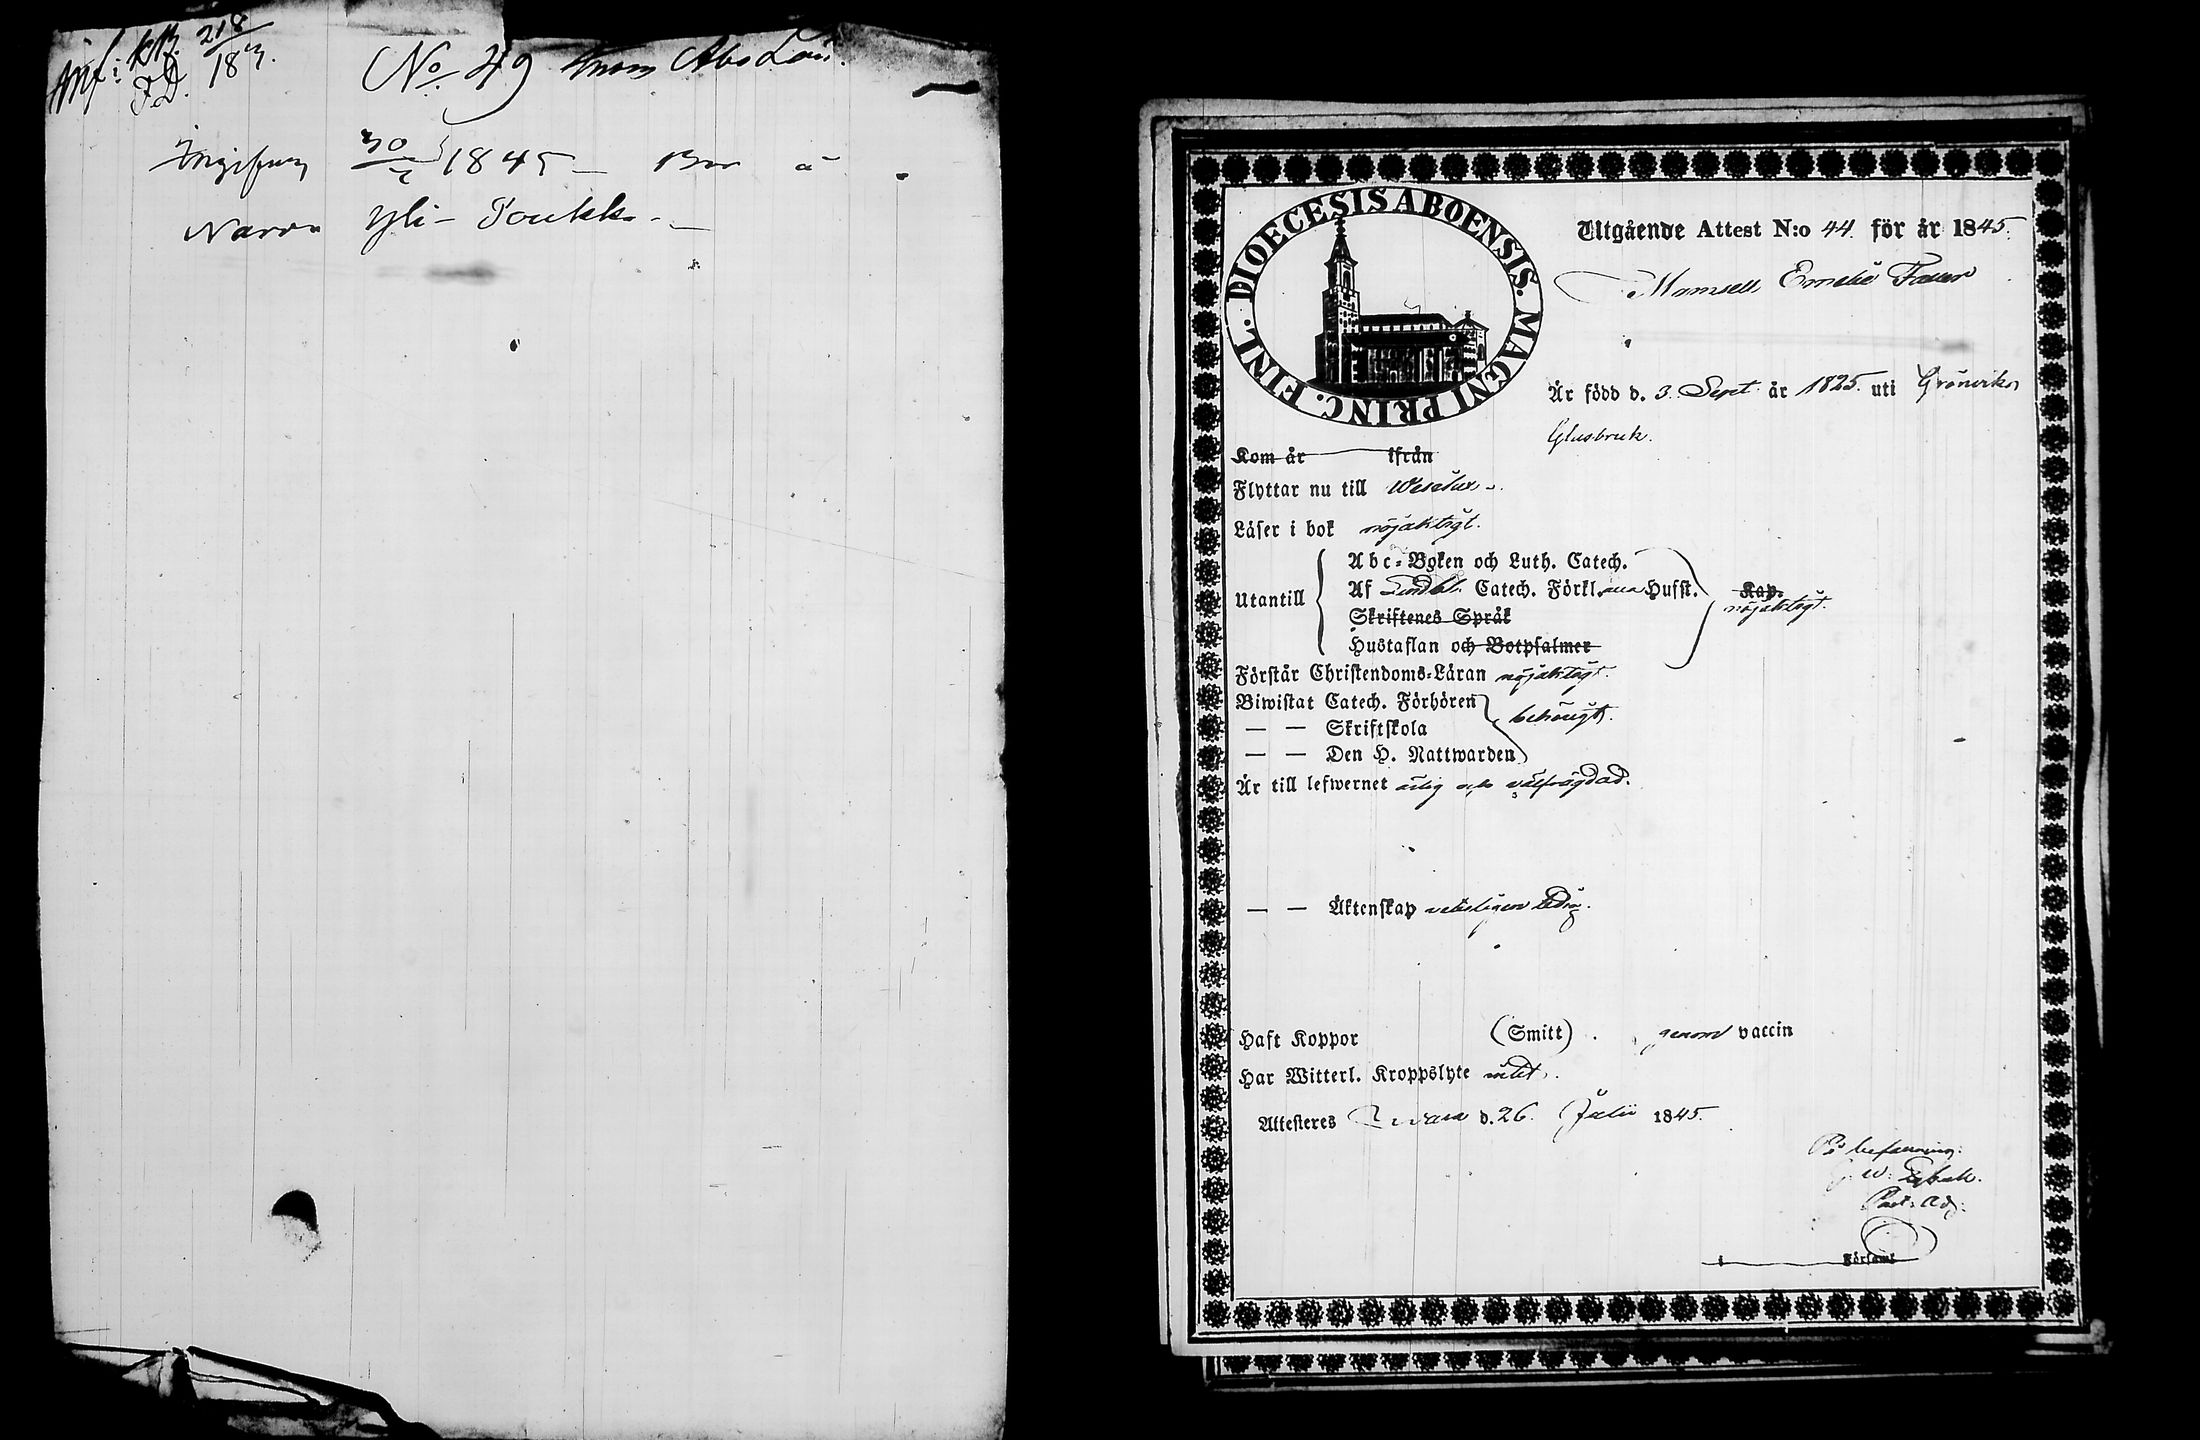 Inf: KB. 218
F.D. 183.
No 49 från Abo Län.
30/7 1845 – Bor å
Yli-Toukk
DIOECESIS ABOENSIS. MAGNI PRINC. FINL.
Utgående Attest N:o 44. för år 1845.
Mamsell Emelie Faser
Är född d. 3. Sept. år 1825. uti Grönviks
Glasbruk.
Kom år ifrån
Flyttar nu till
Läser i bok nöjaktigt.
Utantill
Abc-Boken och Luth. Catech.
Af Catech. Förkl. Hufst. Kap.
nöjaktigt.
Skriftenes Språk
Hustaflan och Botpsalmer
Förstår Christendoms-Läran nöjaktigt.
Biwistat Catech. Förhören
— — Skriftskola behörigt.
— — Den H. Nattwarden
Är till lefwernet ärlig och välfrägdad.
— — Äktenskap veterligen ledig.
Haft Koppor (Smitt). genom vaccin
Har Witterl. Kroppslyte intet.
Attesteres d. 26. Julii 1845.
På befallning:
Past. Adj.
i Församl